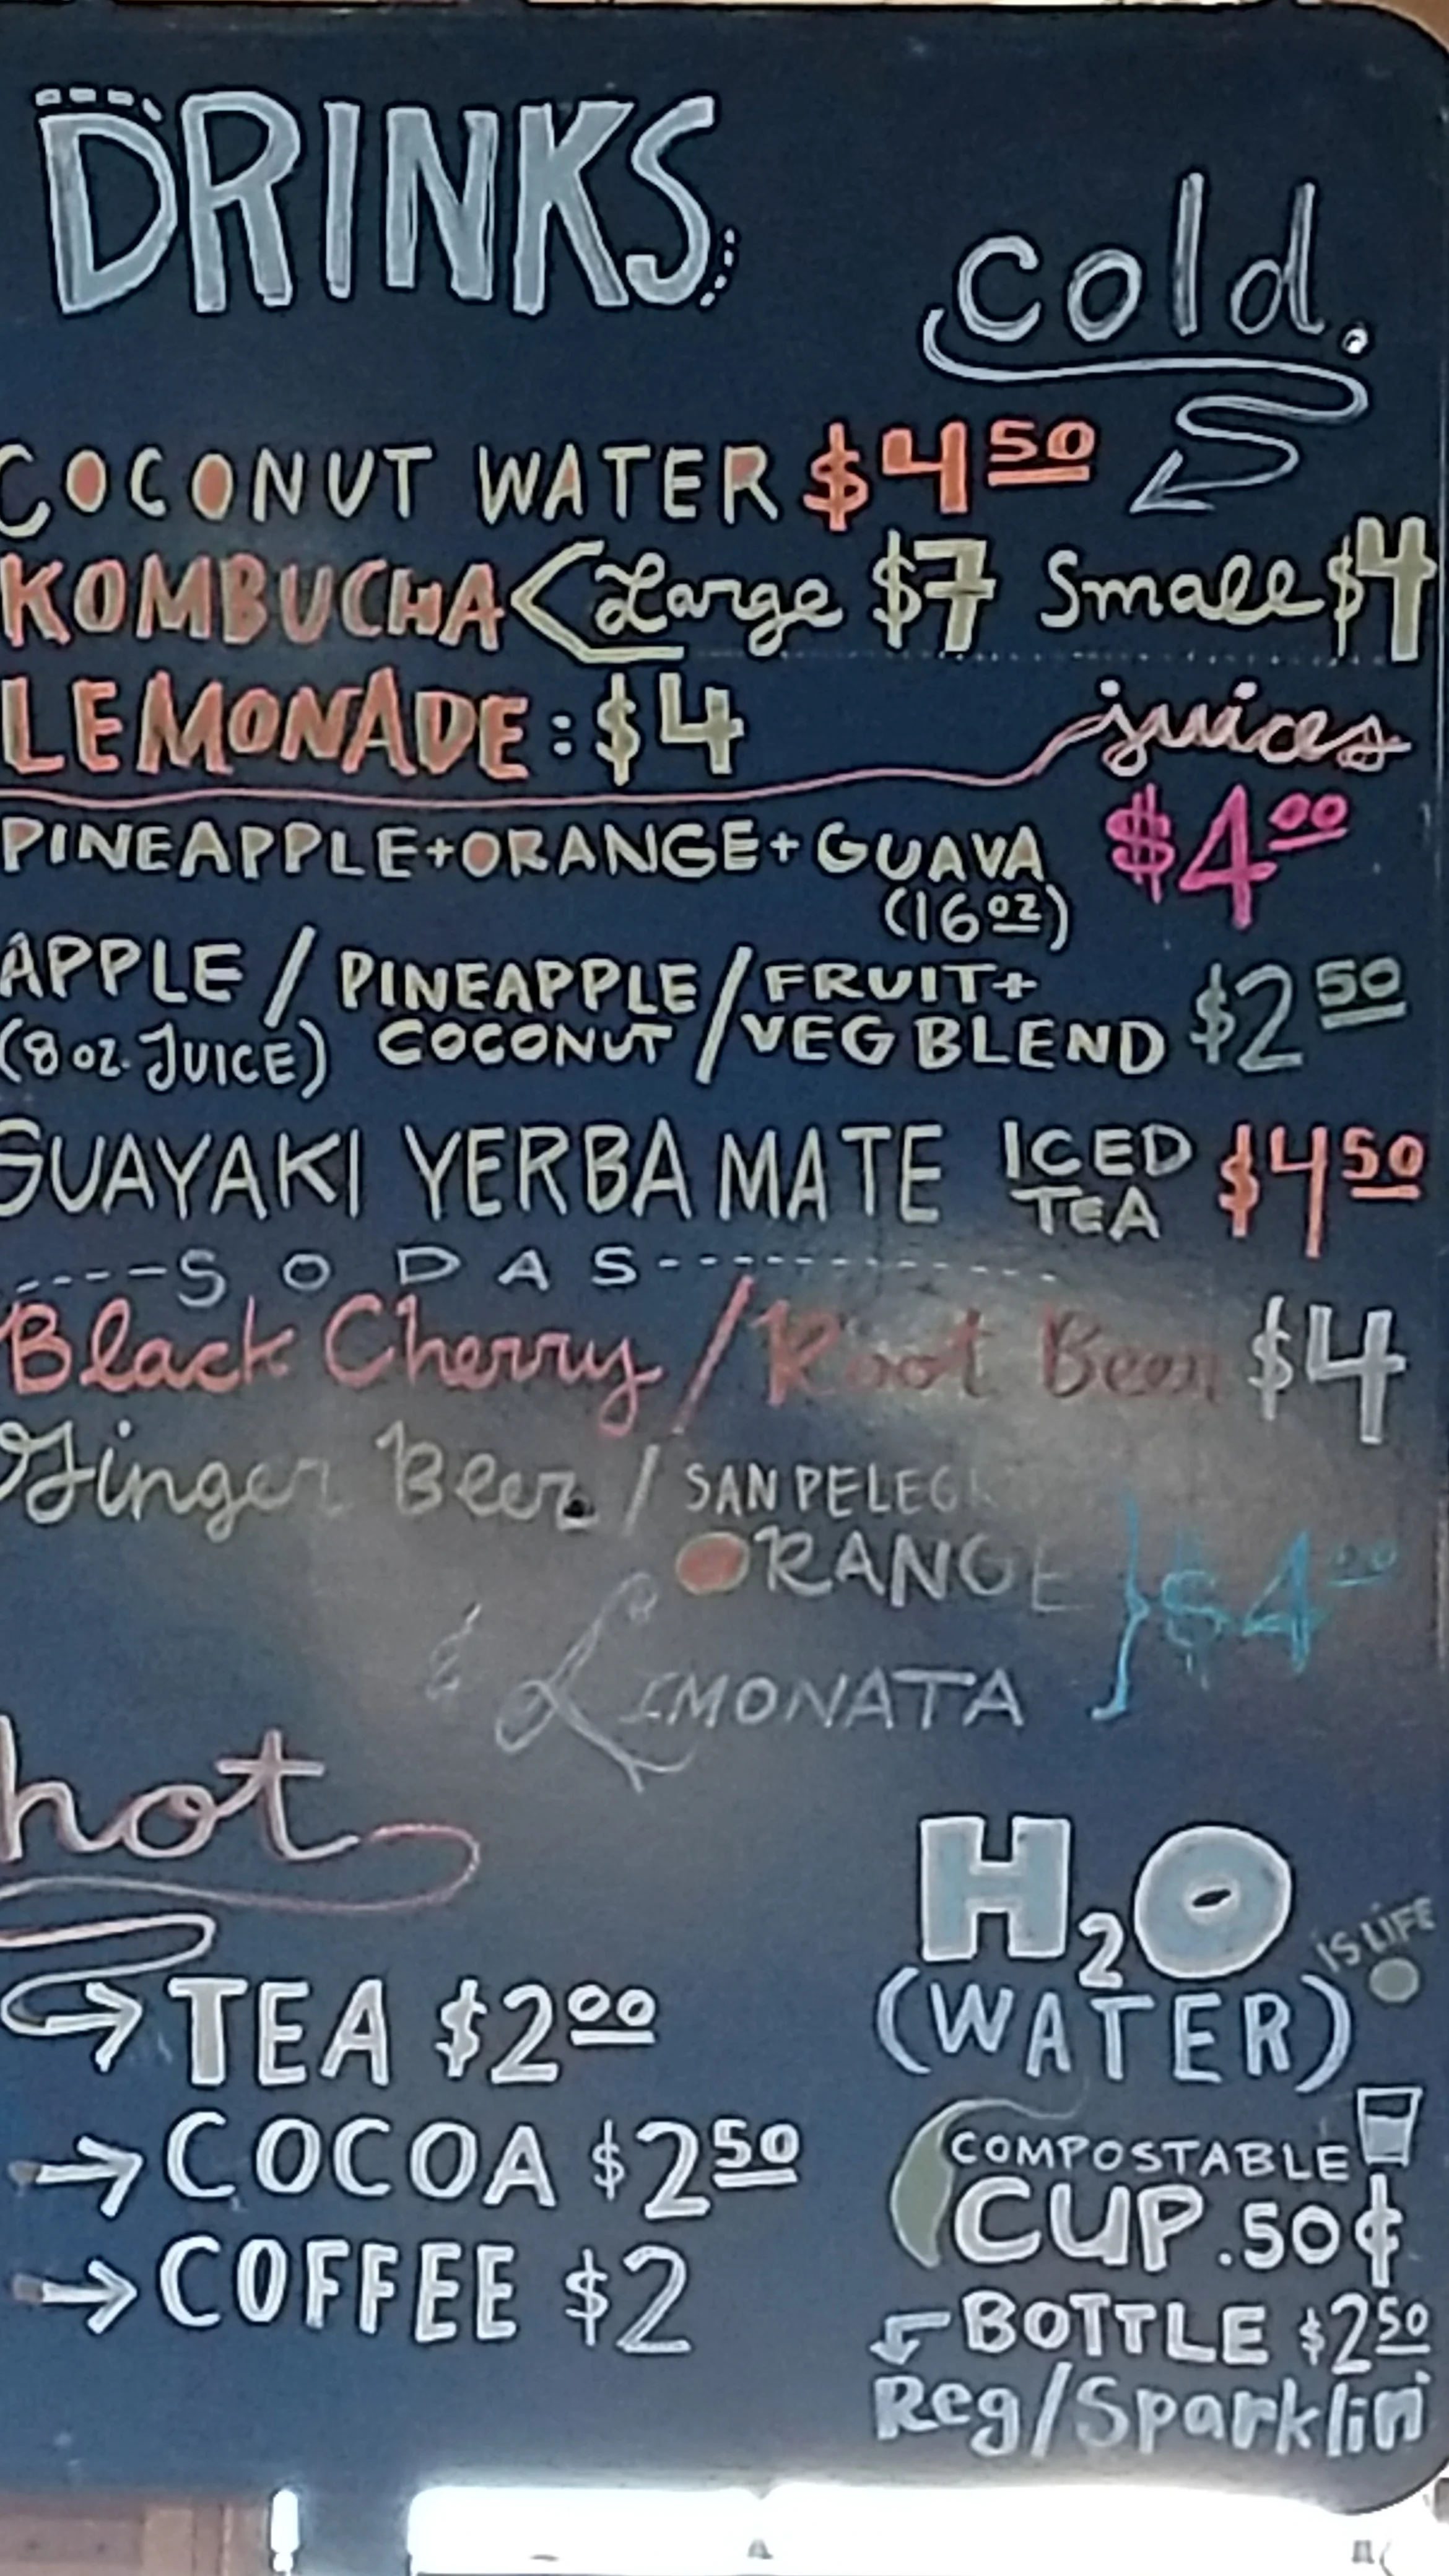 DRINKS
cold.
COCONUT WATER $4 50
KOMBUCHA < Large $7 Small $4
LEMONADE: $4
juices
PINEAPPLE + ORANGE + GUAVA $4 00
(16 oz)
APPLE / PINEAPPLE / FRUIT + $2 50
(8 oz. JUICE) COCONUT VEG BLEND
GUAYAKI YERBA MATE ICED TEA $4 50
----SODAS----
Black Cherry / Root Beer $4
Ginger Beer / SAN PELEG
ORANGE
& LIMONATA } $4 00
hot
H2O
IS LIFE
(WATER)
→ TEA $2 00
→ COCOA $2 50
→ COFFEE $2
COMPOSTABLE
CUP .50¢
BOTTLE $2 50
Reg/Sparklin'